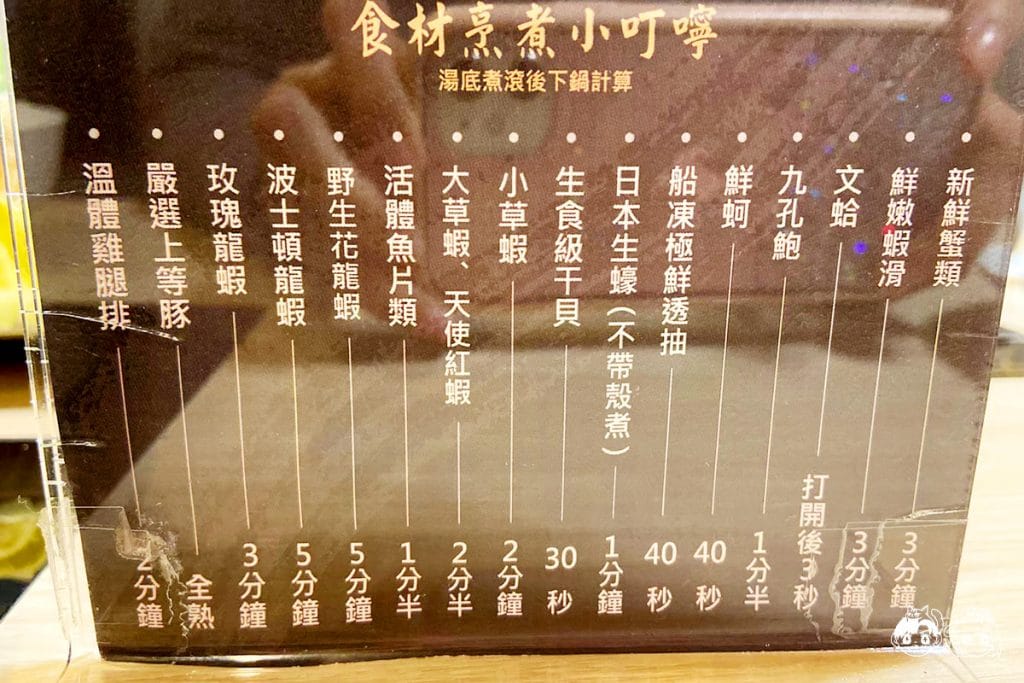 食材烹煮小叮嚀
湯底煮滾後下鍋計算
新鮮蟹類 3分鐘
鮮嫩蝦滑 3分鐘
文蛤 打開後3秒
九孔鮑 1分半
鮮蚵 40秒
船凍極鮮透抽 40秒
日本生蠔(不帶殼煮) 1分鐘
生食級干貝 30秒
小草蝦 2分鐘
大草蝦、天使紅蝦 2分半
活體魚片類 1分半
野生花龍蝦 5分鐘
波士頓龍蝦 5分鐘
玫瑰龍蝦 3分鐘
嚴選上等豚 全熟
溫體雞腿排 2分鐘